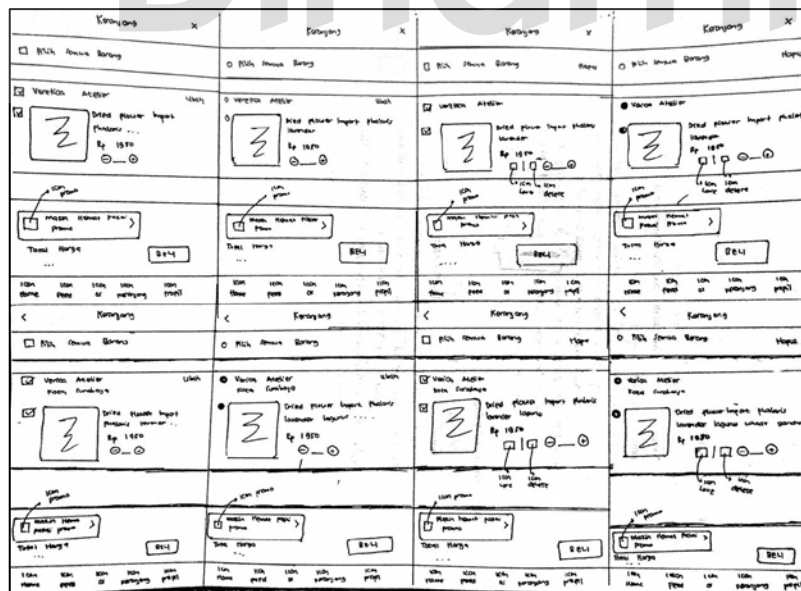 Keranjang X
Pilih Semua Barang
Veretica Atelier Ubah
Dried Flower Import
Phalaris ...
Rp 1950
Icon
promo
Makin Hemat Pakai
promo
Total Harga
...
BELI
Icon Icon Icon Icon Icon
Home Feed keranjang profil
Keranjang X
Pilih Semua Barang
Veretica Atelier Ubah
Dried Flower Import Phalaris
lavender
Rp 1950
Icon
promo
Makin Hemat Pakai
promo
Total Harga
...
BELI
Icon Icon Icon Icon Icon
Home Feed keranjang profil
Keranjang X
Pilih Semua Barang Hapus
Atelier
Dried Flower Import Phalaris
lavender
Rp 1950
Icon Icon
love delete
Icon
promo
Makin Hemat Pakai
promo
Total Harga
...
BELI
Icon Icon Icon Icon Icon
Home Feed keranjang profil
Keranjang X
Pilih Semua Barang Hapus
Atelier
Dried Flower Import Phalaris
lavender
Rp 1950
Icon Icon
love delete
Icon
promo
Makin Hemat
Pakai Promo
Total Harga
...
BELI
Icon Icon Icon Icon Icon
Home Feed keranjang profil
< Keranjang
Pilih Semua Barang
Atelier Ubah
Kota Surabaya
Dried Flower Import
Phalaris lavender ...
Rp 1950
Icon
promo
Makin Hemat
pakai promo
Total Harga
...
BELI
Icon Icon Icon Icon Icon
Home Feed keranjang profil
< Keranjang
Pilih Semua Barang
Atelier Ubah
Kota Surabaya
Dried Flower Import Phalaris
lavender lagurus ...
Rp 1950
Icon promo
Makin Hemat Pakai
promo
Total Harga
...
BELI
Icon Icon Icon Icon Icon
Home Feed keranjang profil
< Keranjang
Pilih Semua Barang Hapus
Atelier
Kota Surabaya
Dried Flower Import Phalaris
lavender lagurus
Rp 1950
Icon Icon
love delete
Icon promo
Makin hemat pakai
promo
Total Harga
...
BELI
Icon Icon Icon Icon Icon
Home Feed keranjang profil
< Keranjang
Pilih Semua Barang Hapus
Atelier
Kota Surabaya
Dried Flower Import Phalaris
lavender lagurus
Rp 1950
Icon Icon
love delete
Icon
promo
Makin Hemat Pakai
promo
Total Harga
...
BELI
Icon Icon Icon Icon Icon
Home Feed keranjang profil